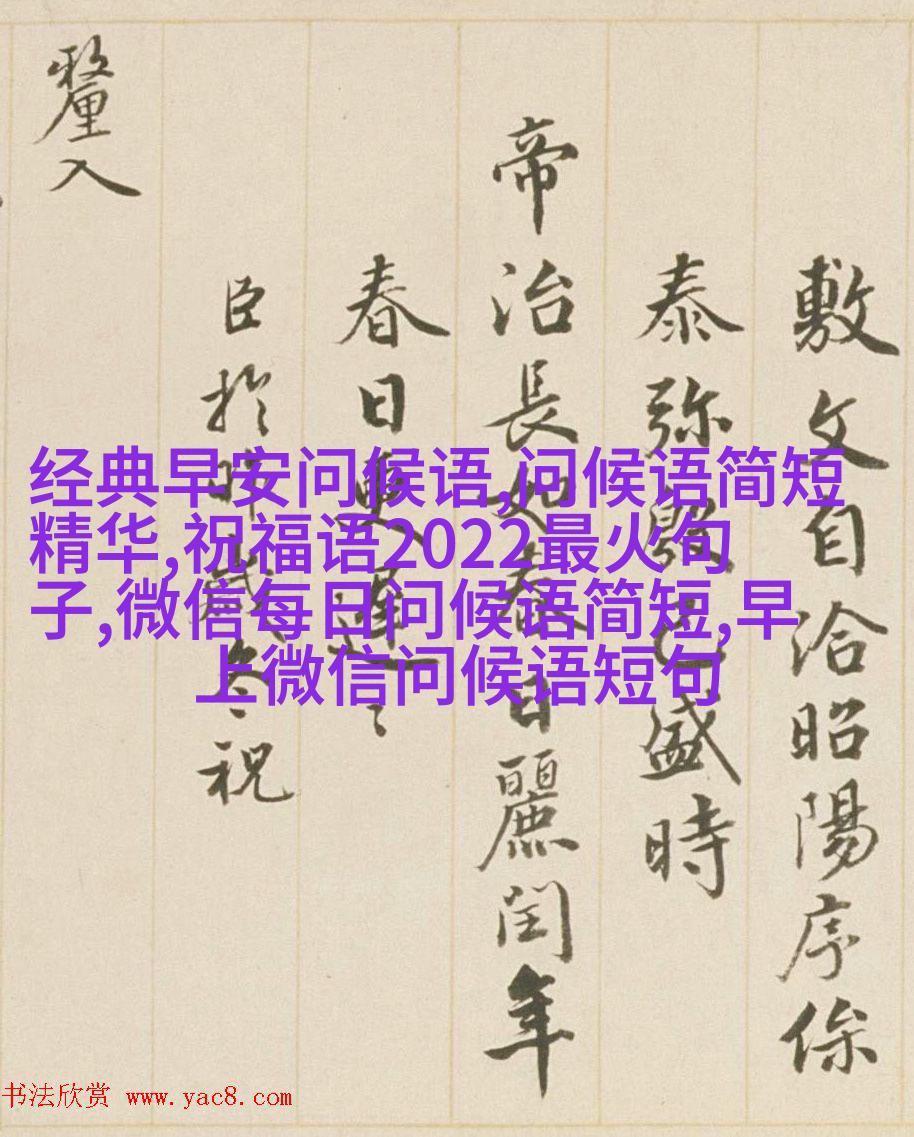 敷文自洽昭陽序
泰弥盛時
帝治長如春日麗閏年
春日更遲
臣於祝
釐入
经典早安问候语,问候语简短
精华,祝福语2022最火句
子,微信每日问候语简短,早
上微信问候语短句
书法欣赏 www.yac8.com